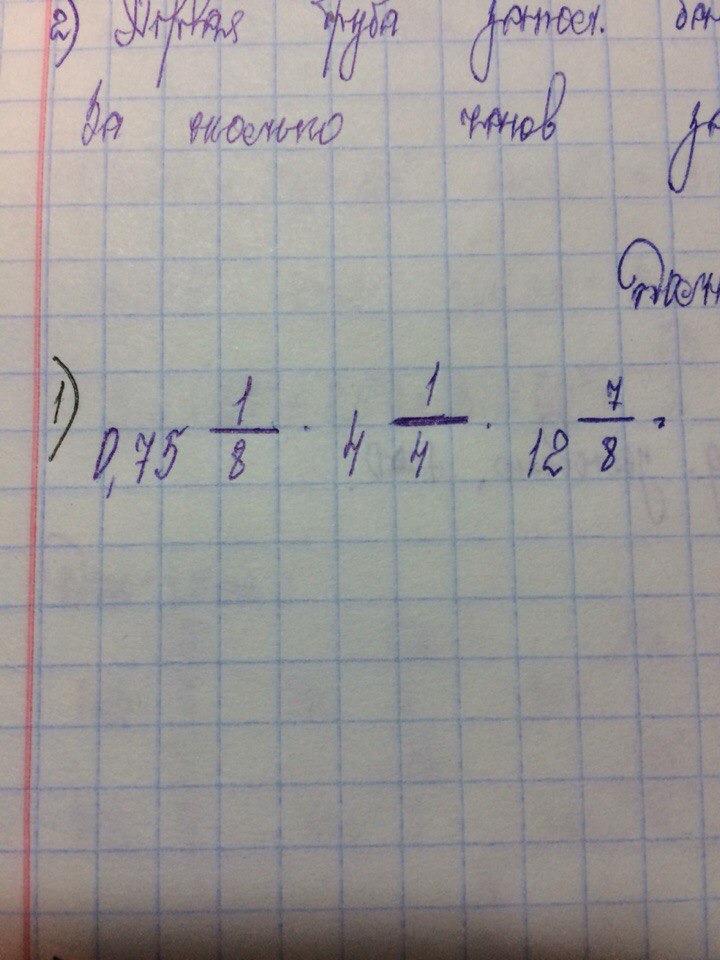 2) Первая труба заполн. бас
За сколько часов за
1) 0,75 1/8 · 4 1/4 · 12 7/8 =